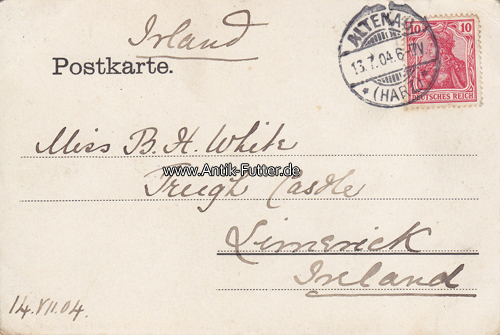 Irland
Postkarte.
ALTENAU
13.7.04.6-7N
* (HARZ) *
10 10
DEUTSCHES REICH
Miss B. H. White
www.Antik-Futter.de
Treugh Castle
Limerick
Ireland
14.VII.04.